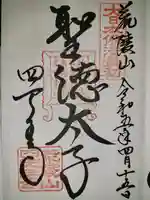 荒陵山
令和五年四月十五日
聖徳太子
四天王寺